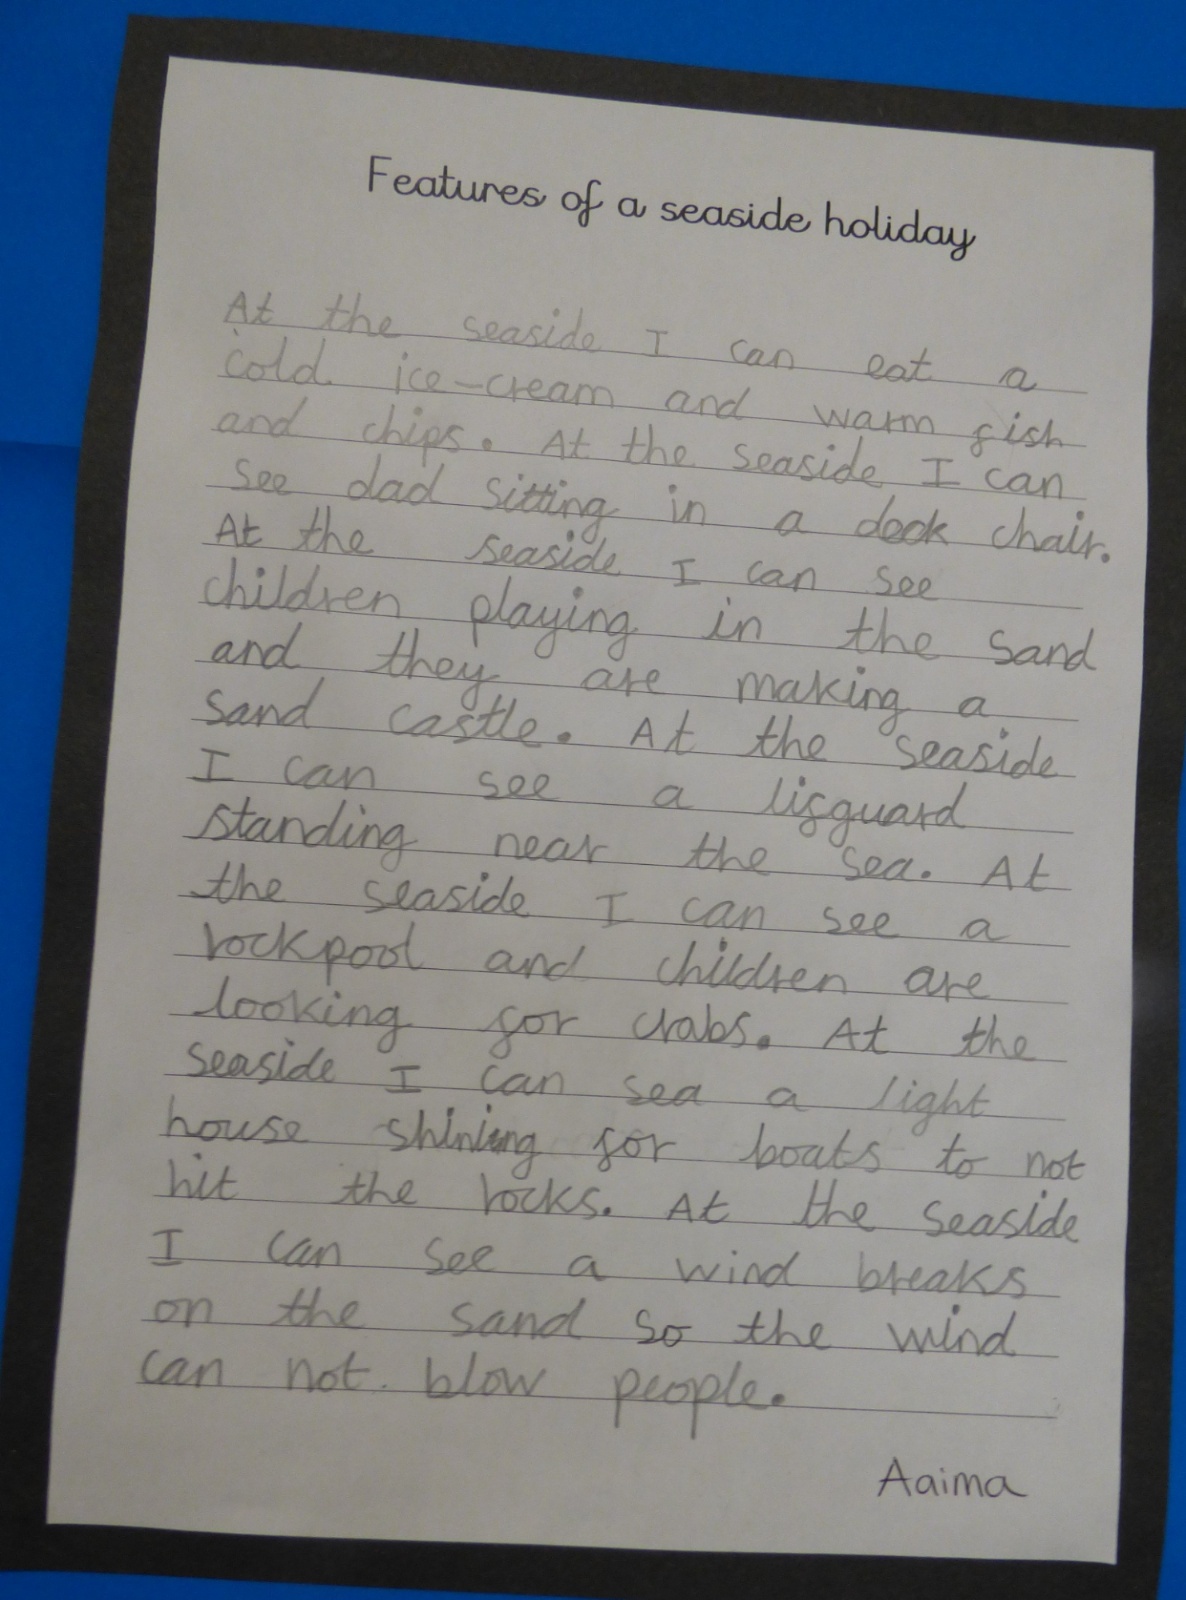 Features of a seaside holiday
At the seaside I can eat a
cold ice-cream and warm fish
and chips. At the seaside I can
see dad sitting in a deck chair.
At the seaside I can see
children playing in the sand
and they are making a
sand castle. At the seaside
I can see a lifguard
standing near the sea. At
the seaside I can see a
rockpool and children are
looking for crabs. At the
seaside I can sea a light
house shining for boats to not
hit the rocks. At the seaside
I can see a wind breaks
on the sand so the wind
can not blow people.
Aaima